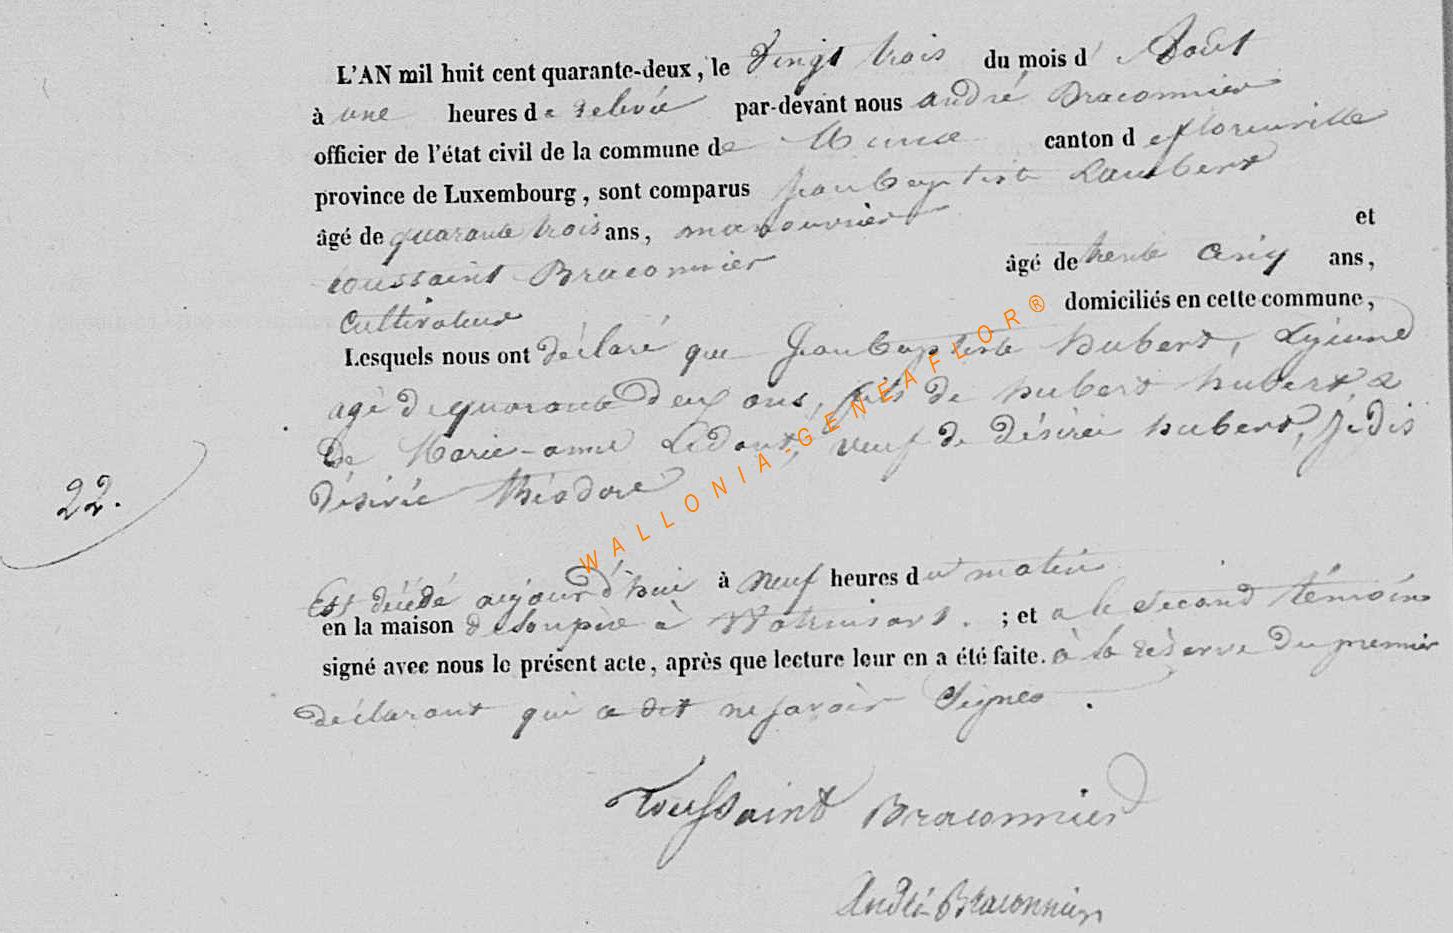 L'AN mil huit cent quarante-deux, le Vingt trois du mois d' Août
à une heures de relevée par-devant nous andré Braconnier
officier de l'état civil de la commune de Muno canton de florenville
province de Luxembourg, sont comparus jean baptiste Lambert
âgé de quarante trois ans, manouvrier et
toussaint Braconnier âgé de trente cinq ans,
Cultivateur domiciliés en cette commune,
Lesquels nous ont déclaré que jean baptiste hubert,
agé de quarante deux ans, fils de hubert hubert &
De Marie-anne Ledoux, veuf de désirée hubert, je dis
22.
désirée théodore
Est décédé aujourd'hui à Neuf heures du matin
en la maison de son père à Watrinsart. ; et a le second témoin
signé avec nous le présent acte, après que lecture leur en a été faite. à la réserve du premier
déclarant qui a dit ne savoir Signer.
Toussaint Braconnier
André Braconnier
WALLONIA-GENEAFLOR®